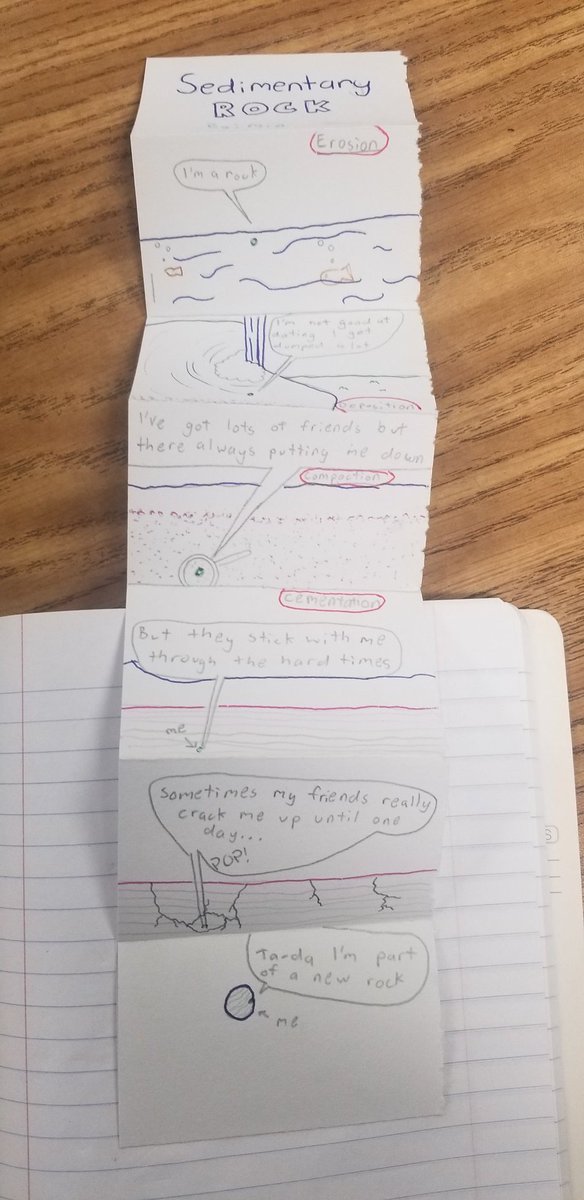 Sedimentary
ROCK
Erosion
I'm a rock
I'm not good at
dating I get
dumped a lot
Deposition
I've got lots of friends but
there always putting me down
compaction
cementation
But they stick with me
through the hard times
me
Sometimes my friends really
crack me up until one
day...
POP!
Ta-da I'm part
of a new rock
me